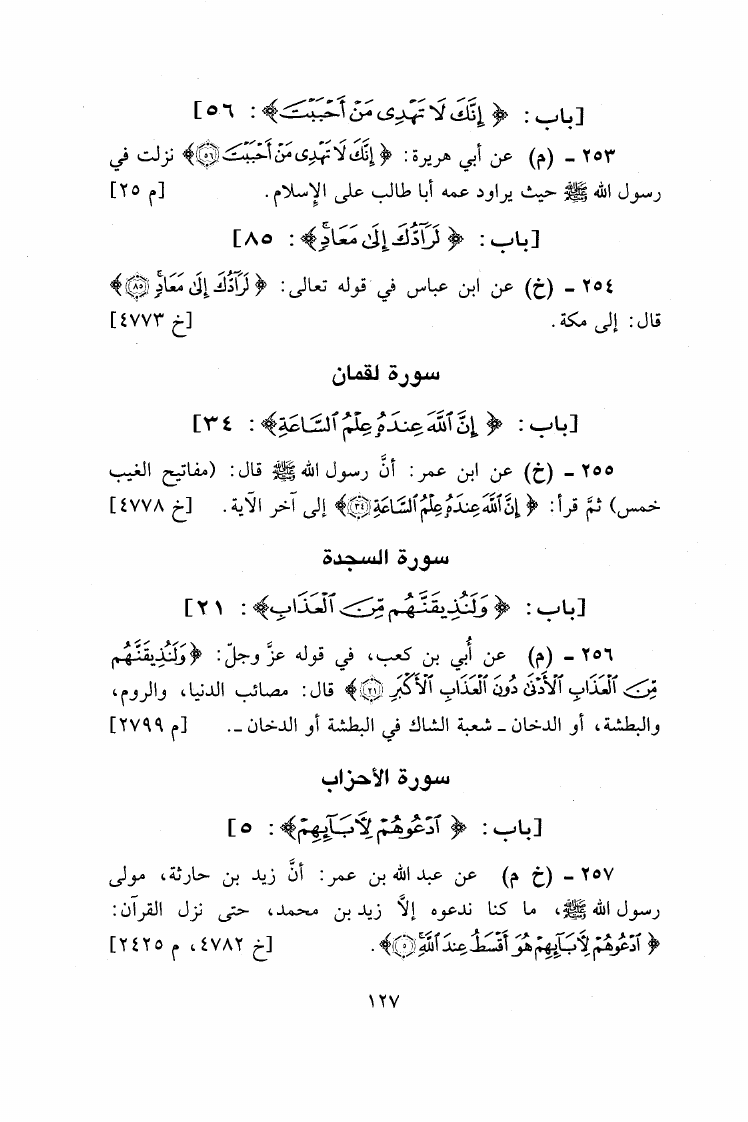 [باب: ﴿ إِنَّكَ لَا تَهْدِى مَنْ أَحْبَبْتَ﴾: ٥٦]
٢٥٣ ـ (م) عن أبي هريرة: ﴿ إِنَّكَ لَا تَهْدِى مَنْ أَحْبَبْتَ ۝٥٦﴾ نزلت في
رسول الله ﷺ حيث يراود عمه أبا طالب على الإسلام. [م ٢٥]
[باب: ﴿ لَرَآدُّكَ إِلَىٰ مَعَادٍ﴾: ٨٥]
٢٥٤ ـ (خ) عن ابن عباس في قوله تعالى: ﴿ لَرَآدُّكَ إِلَىٰ مَعَادٍ ۝٨٥﴾
قال: إلى مكة. [خ ٤٧٧٣]
سورة لقمان
[باب: ﴿ إِنَّ ٱللَّهَ عِندَهُۥ عِلْمُ ٱلسَّاعَةِ﴾: ٣٤]
٢٥٥ ـ (خ) عن ابن عمر: أنَّ رسول الله ﷺ قال: (مفاتيح الغيب
خمس) ثمَّ قرأ: ﴿ إِنَّ ٱللَّهَ عِندَهُۥ عِلْمُ ٱلسَّاعَةِ ۝٣٤﴾ إلى آخر الآية. [خ ٤٧٧٨]
سورة السجدة
[باب: ﴿ وَلَنُذِيقَنَّهُم مِّنَ ٱلْعَذَابِ﴾: ٢١]
٢٥٦ ـ (م) عن أُبي بن كعب، في قوله عزَّ وجلّ: ﴿وَلَنُذِيقَنَّهُم
مِّنَ ٱلْعَذَابِ ٱلْأَدْنَىٰ دُونَ ٱلْعَذَابِ ٱلْأَكْبَرِ ۝٢١﴾ قال: مصائب الدنيا، والروم،
والبطشة، أو الدخان ـ شعبة الشاك في البطشة أو الدخان ـ. [م ٢٧٩٩]
سورة الأحزاب
[باب: ﴿ ٱدْعُوهُمْ لِأٓبَآئِهِمْ﴾: ٥]
٢٥٧ ـ (خ م) عن عبد الله بن عمر: أنَّ زيد بن حارثة، مولى
رسول الله ﷺ، ما كنا ندعوه إلاَّ زيد بن محمد، حتى نزل القرآن:
﴿ ٱدْعُوهُمْ لِأٓبَآئِهِمْ هُوَ أَقْسَطُ عِندَ ٱللَّهِ ۝٥﴾. [خ ٤٧٨٢، م ٢٤٢٥]
١٢٧